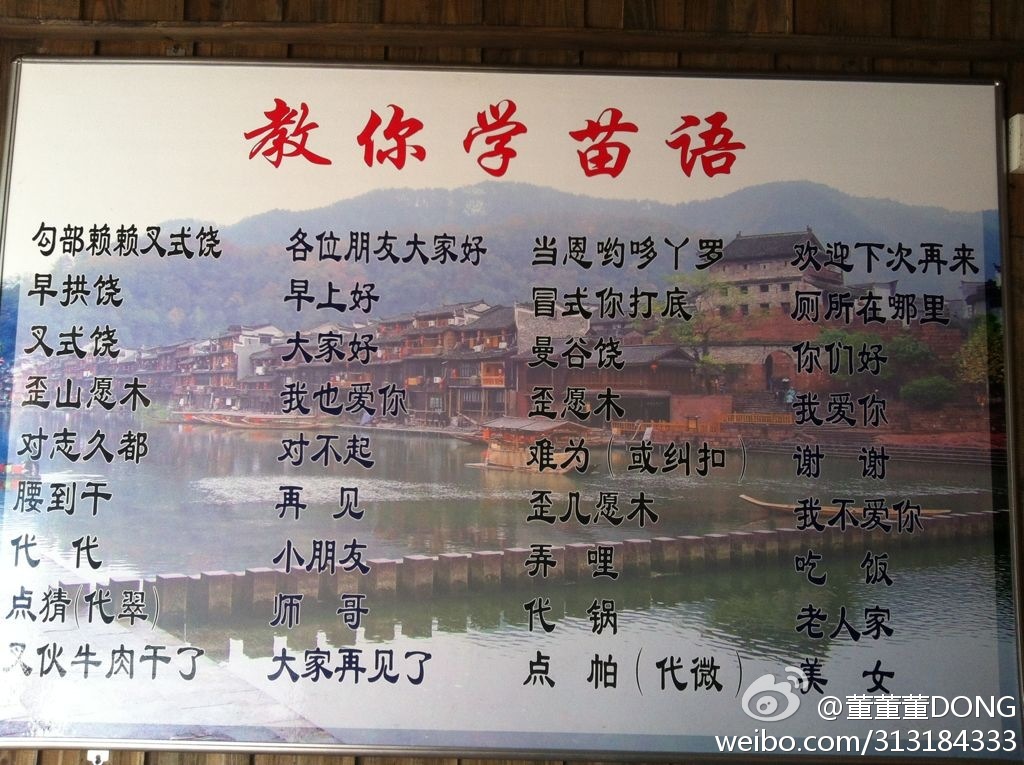 教你学苗语
匀部赖赖叉式饶 各位朋友大家好 当恩哟哆丫罗 欢迎下次再来
早拱饶 早上好 冒式你打底 厕所在哪里
叉式饶 大家好 曼谷饶 你们好
歪山愿木 我也爱你 歪愿木 我爱你
对志久都 对不起 难为(或纠扣) 谢谢
腰到干 再见 歪几愿木 我不爱你
代代 小朋友 弄哩 吃饭
点猜(代翠) 师哥 代锅 老人家
叉伙牛肉干了 大家再见了 点帕(代微) 美女
@董董董DONG
weibo.com/313184333